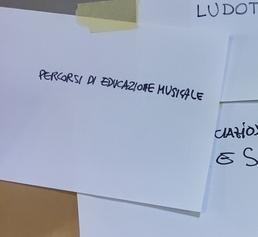 LUDOT
PERCORSI DI EDUCAZIONE MUSICALE
CIAZIO
E S